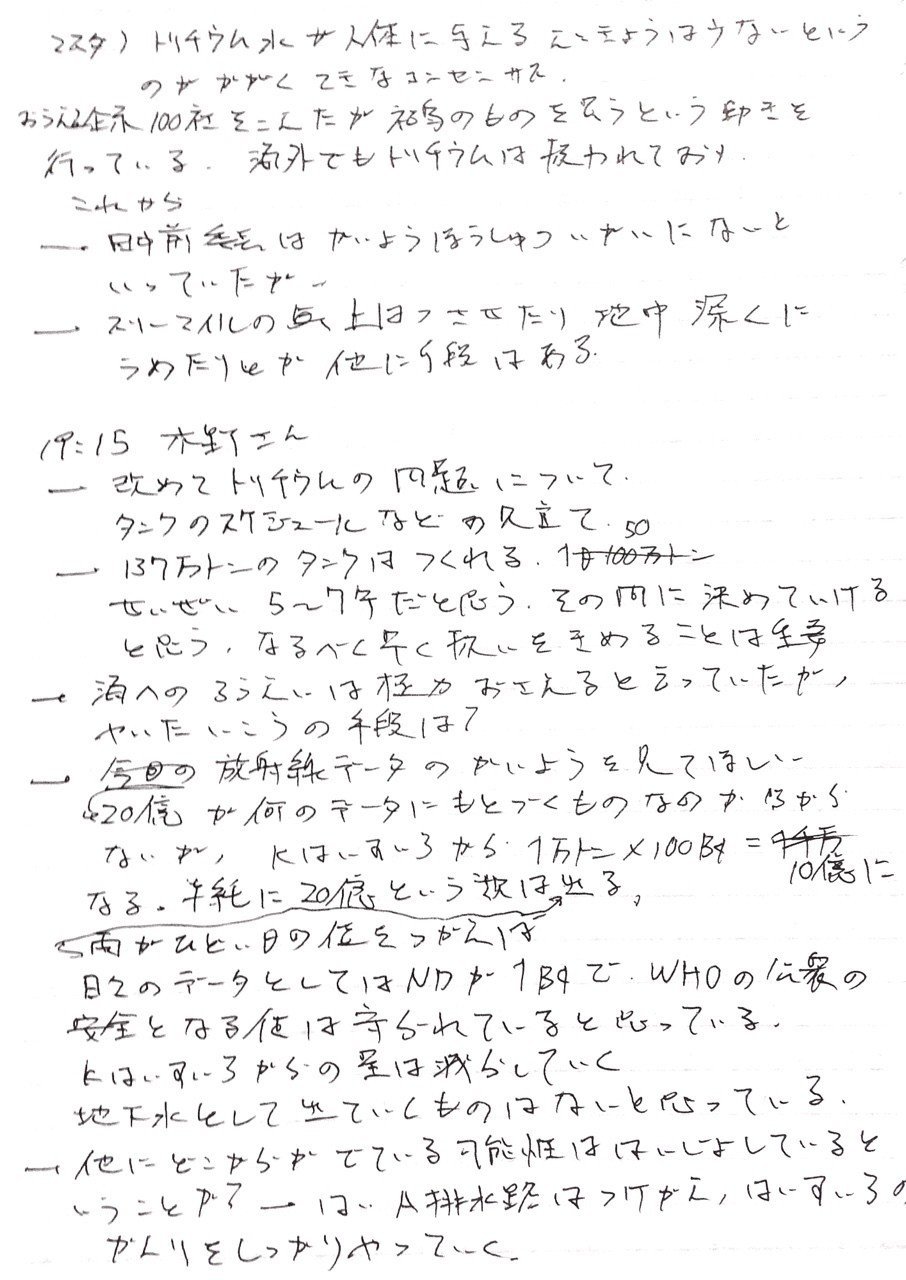 マスタ) トリチウム水が人体に与える えいきょうは少ないという
のが かがくてきなコンセンサス.
おうえん企業 100社をこえたが 福島のものを買うという動きを
行っている. 海外でもトリチウムは扱われており.
これから
ー. 田中前委員長は かいようほうしゅつ いがいにないと
いっていたが ー
ー スリーマイルの 蒸上はつさせたり 地中 深くに
うめたりとか 他に手段はある.
19:15 木野さん
ー 改めてトリチウムの問題について.
タンクのスケジュールなどの見立て.
ー. 137万トンのタンクはつくれる. 50
せいぜい 5〜7年だと思う. その間に決めていける
と思う. なるべく早く扱いをきめることは重要
ー 海へのろうえいは極力おさえると言っていたが,
やいたいこうの手段は?
ー 今日の 放射線データのがいようを見てほしい
20億が何のデータにもとづくものなのか分から
ないが, Kはいすいろから. 1万トン×100Bq = 10億に
なる. 単純に20億という数は出る.
雨がひどい日の値をつかえば
日々のデータとしてはNDが1Bqで. WHOの公衆の
安全となる値は守られていると思っている.
Kはいすいろからの量は減らしていく
地下水として出ていくものはないと思っている.
ー 他にどこからか でている可能性ははいじょしていると
いうことか? ー はい A排水路はつけかえ, はいすいろの
かんりをしっかりやっていく.